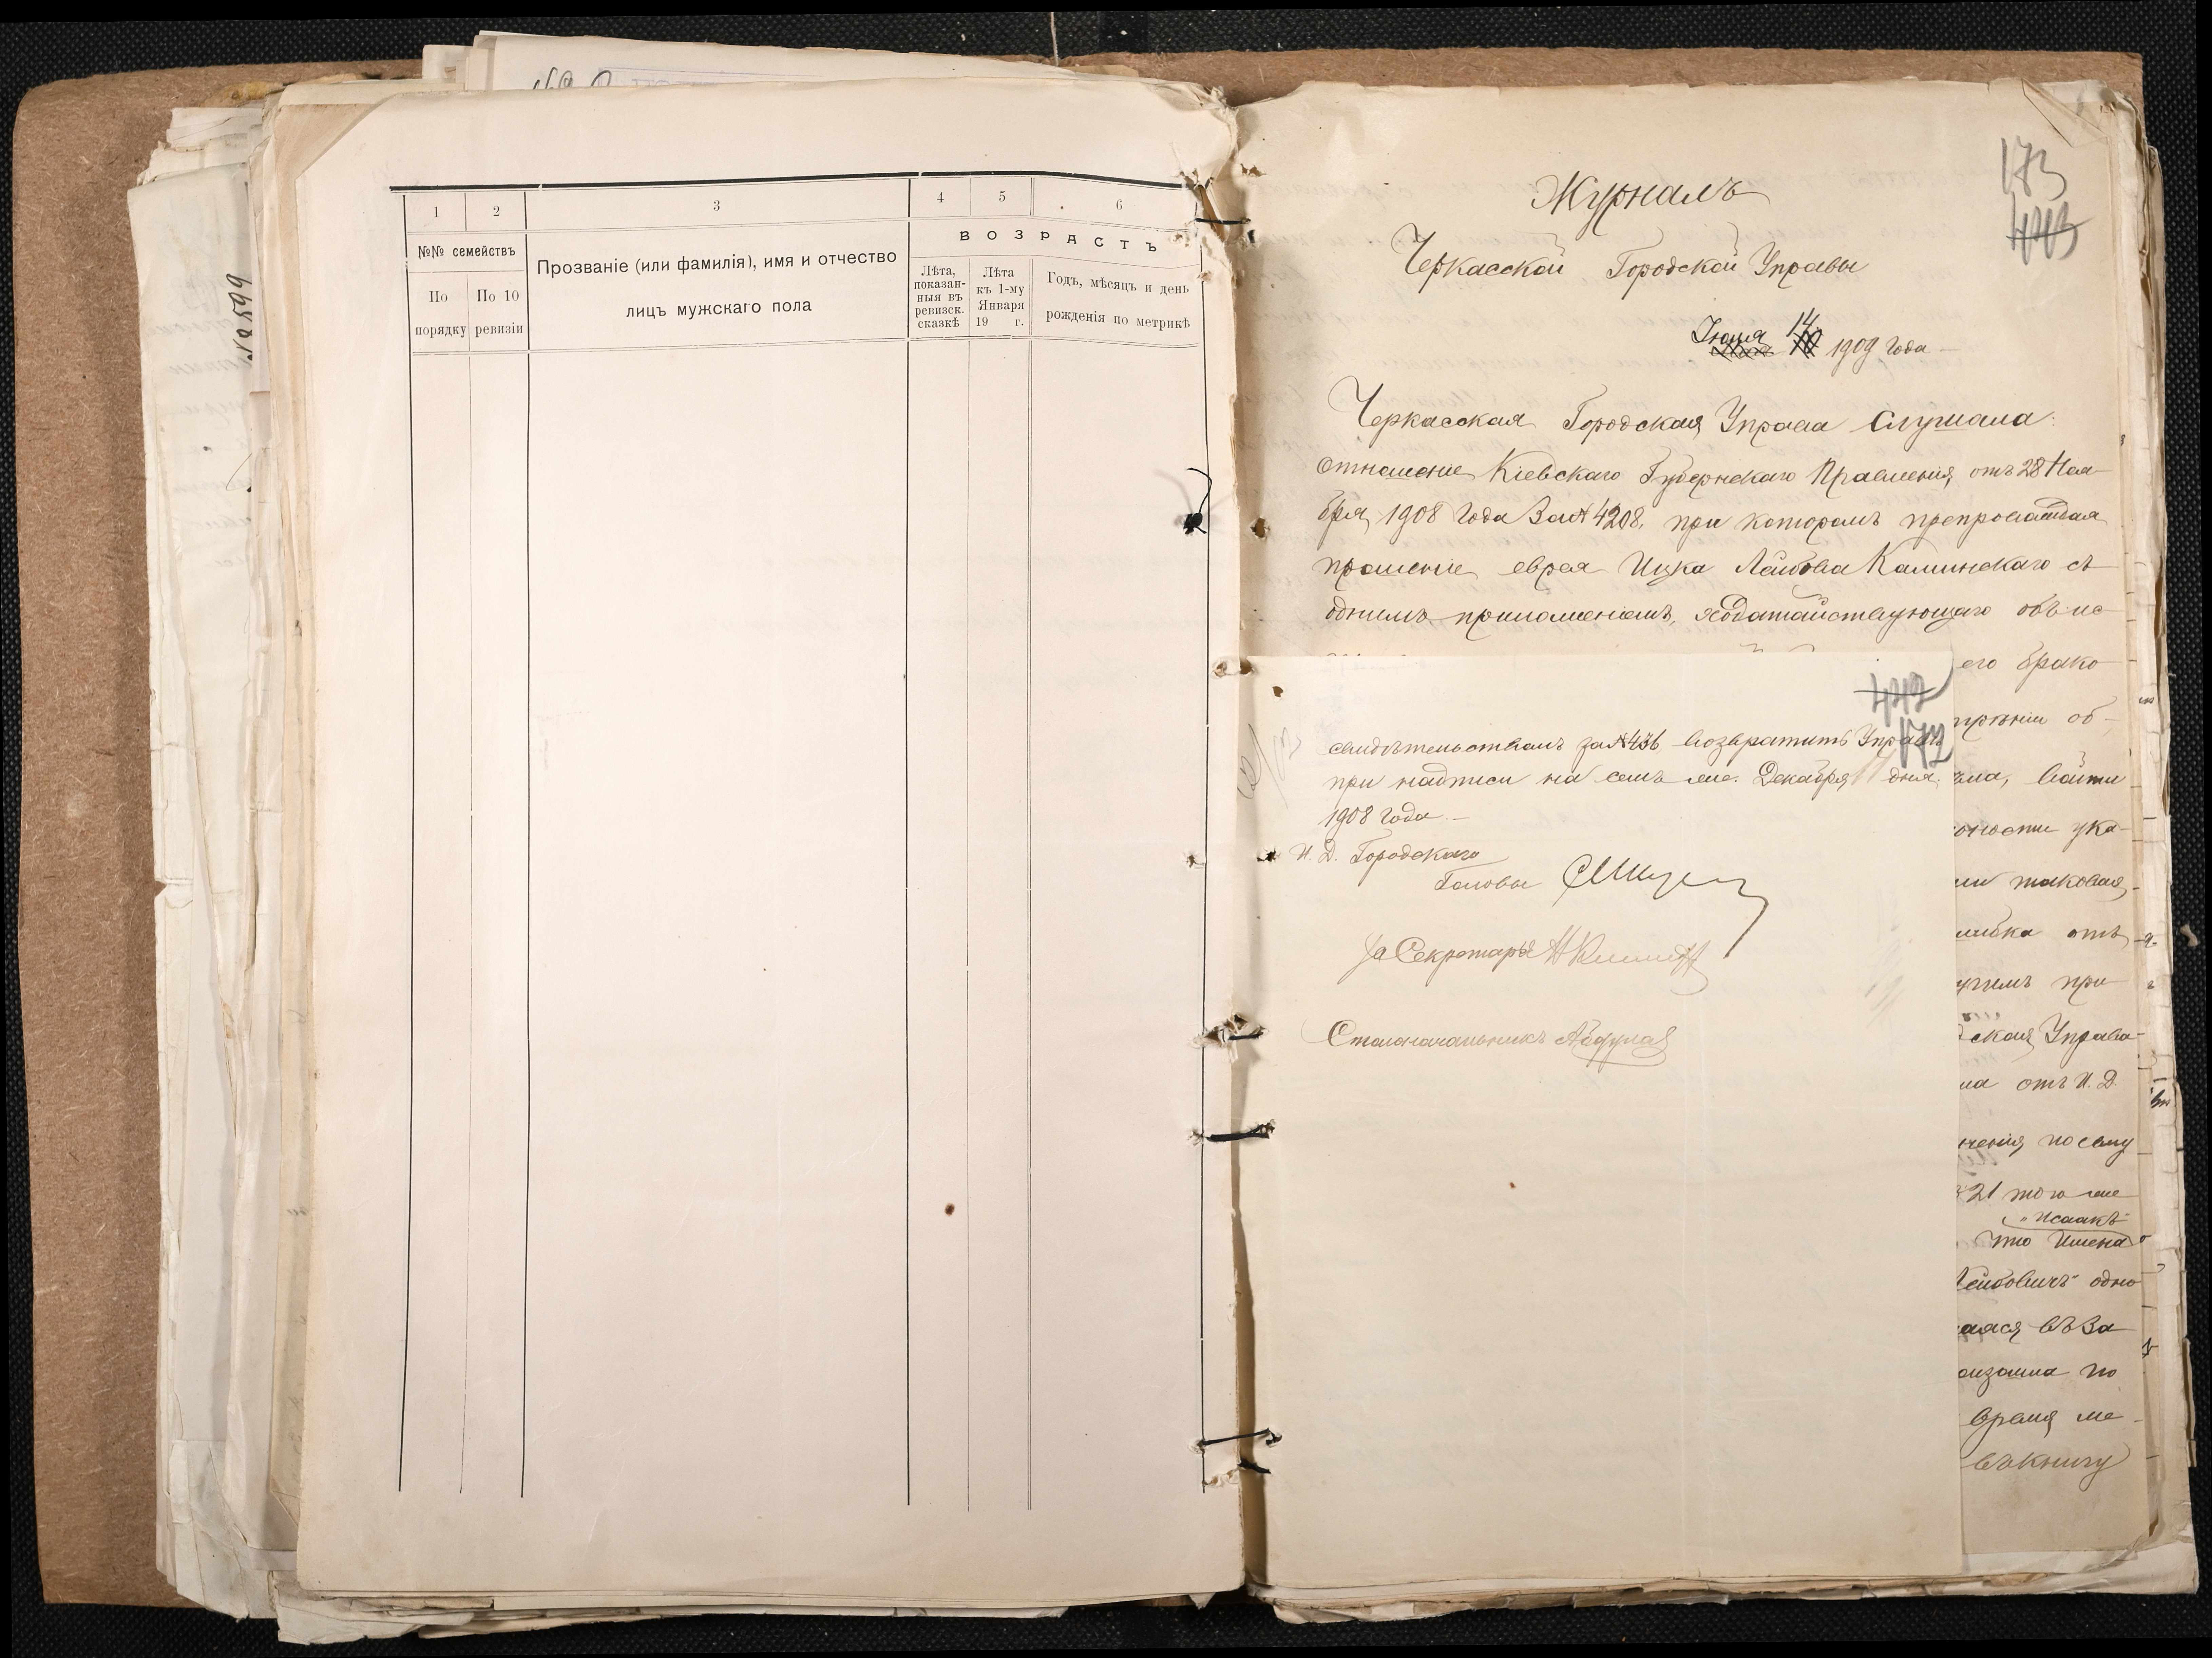 № 599
1 2 3 4 5 6
№№ семействъ
По порядку
По 10 ревизіи
Прозваніе (или фамилія), имя и отчество
лицъ мужскаго пола
ВОЗРАСТЪ
Лѣта,
показан-
ныя въ
ревизск.
сказкѣ
Лѣта
къ 1-му
Января
19 г.
Годъ, мѣсяцъ и день
рожденія по метрикѣ
173
443
Журналъ
Черкасской Городской Управы
Іюня 14 1909 года
Черкасская Городская Управа Слушала:
отношеніе Кіевскаго Губернскаго Правленія, отъ 28 Ноя-
бря 1908 года за № 4208, при которомъ препровождая
прошеніе еврея Ицка Лейбова Каминскаго съ
однимъ приложеніемъ, ходатайствующаго объ ис
его брако
об-
войти
ука-
таковая,
отъ
при
ская Управа
отъ И. Д.
ненія по сему
21 того же
"Исаакъ"
что имена
Лейбовичъ" одно
аяся въ За
по
время ме-
въ книгу
442
172
свидѣтельствомъ за № 436 возвратить Управѣ
при надписи на семъ же. Декабря дня
1908 года.
И. Д. Городскаго
Головы
За Секретаря
Столоначальникъ